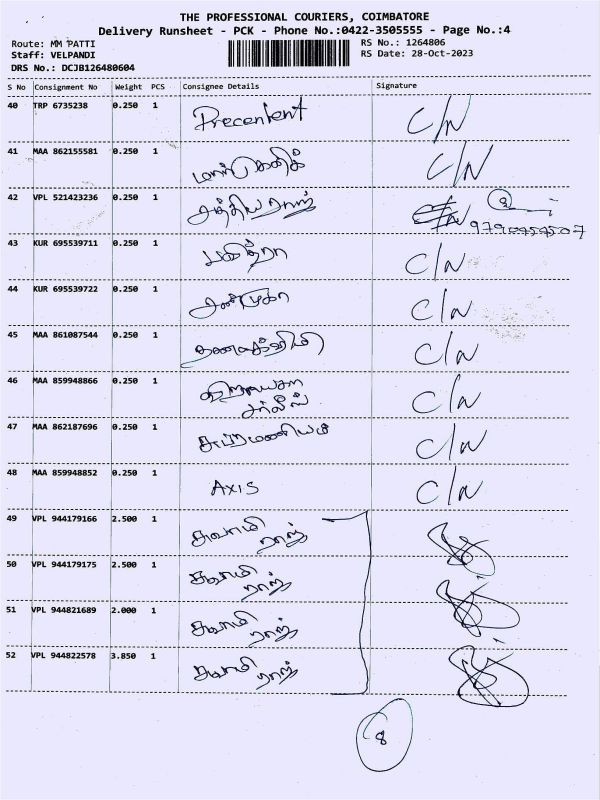 THE PROFESSIONAL COURIERS, COIMBATORE
Delivery Runsheet - PCK - Phone No.:0422-3505555 - Page No.:4
Route: MM PATTI RS No.: 1264806
Staff: VELPANDI RS Date: 28-Oct-2023
DRS No.: DCJB126480604
S No Consignment No Weight PCS Consignee Details Signature
40 TRP 6735238 0.250 1 Precentent C/N
41 MAA 862155581 0.250 1 C/N
42 VPL 521423236 0.250 1 சத்தியராஜ்
43 KUR 695539711 0.250 1 பவித்ரா C/N
44 KUR 695539722 0.250 1 சண்முகா C/N
45 MAA 861087544 0.250 1 தனலக்ஷ்மி C/N
46 MAA 859948866 0.250 1 C/N
47 MAA 862187696 0.250 1 சுப்ரமணியம் C/N
48 MAA 859948852 0.250 1 AXIS C/N
49 VPL 944179166 2.500 1 சுவாமி ராஜ்
50 VPL 944179175 2.500 1 சுவாமி ராஜ்
51 VPL 944821689 2.000 1 சுவாமி ராஜ்
52 VPL 944822578 3.850 1 சுவாமி ராஜ்
8